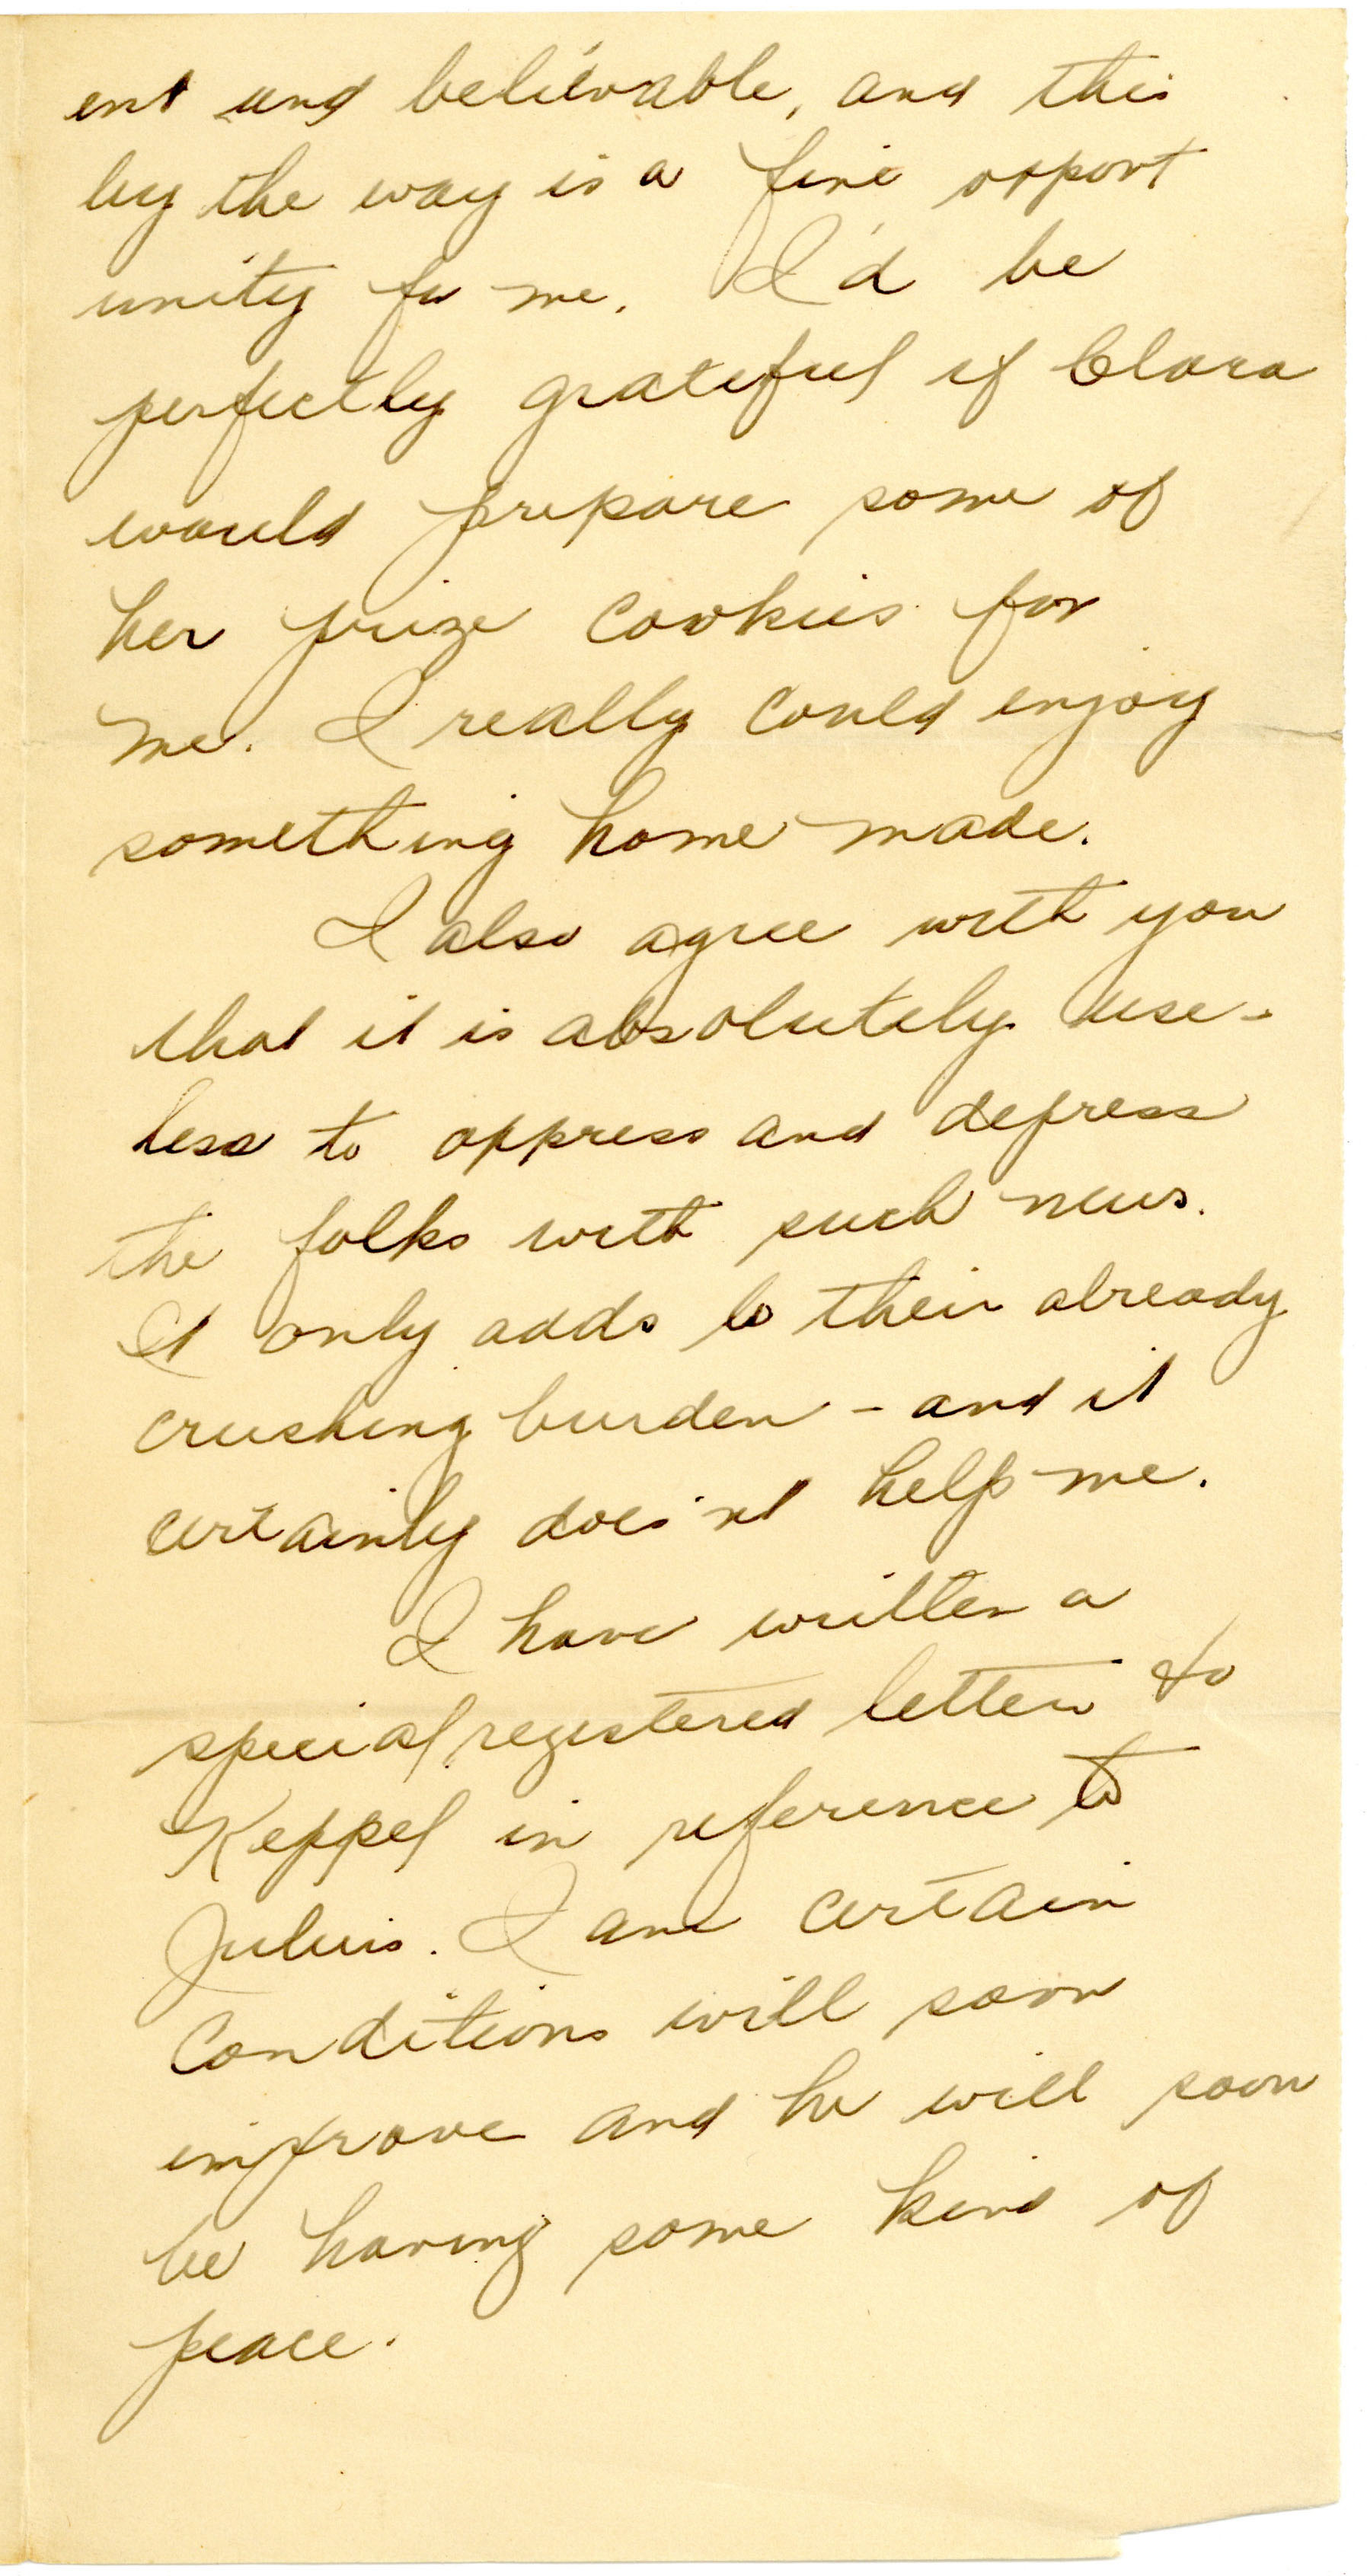 ent and believable, and this
by the way is a fine opport
unity for me. I'd be
perfectly grateful if Clara
would prepare some of
her prize cookies for
me. I really could enjoy
something home made.
I also agree with you
that it is absolutely use-
less to oppress and depress
the folks with such news.
It only adds to their already
crushing burden - and it
certainly does'nt help me.
I have written a
special registered letter to
Keppel in reference to
Julius. I am certain
conditions will soon
improve and he will soon
be having some kind of
peace.